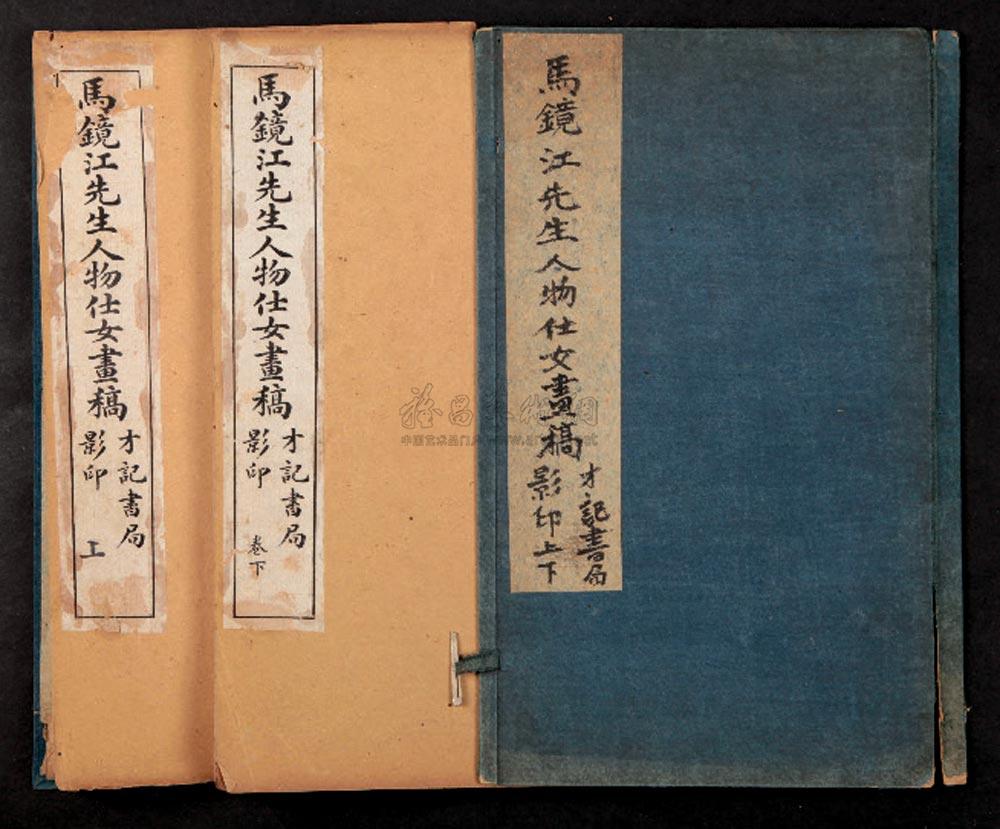 馬鏡江先生人物仕女畫稿
才記書局
影印
上
馬鏡江先生人物仕女畫稿
才記書局
影印
卷下
馬鏡江先生人物仕女畫稿
才記書局
影印上下